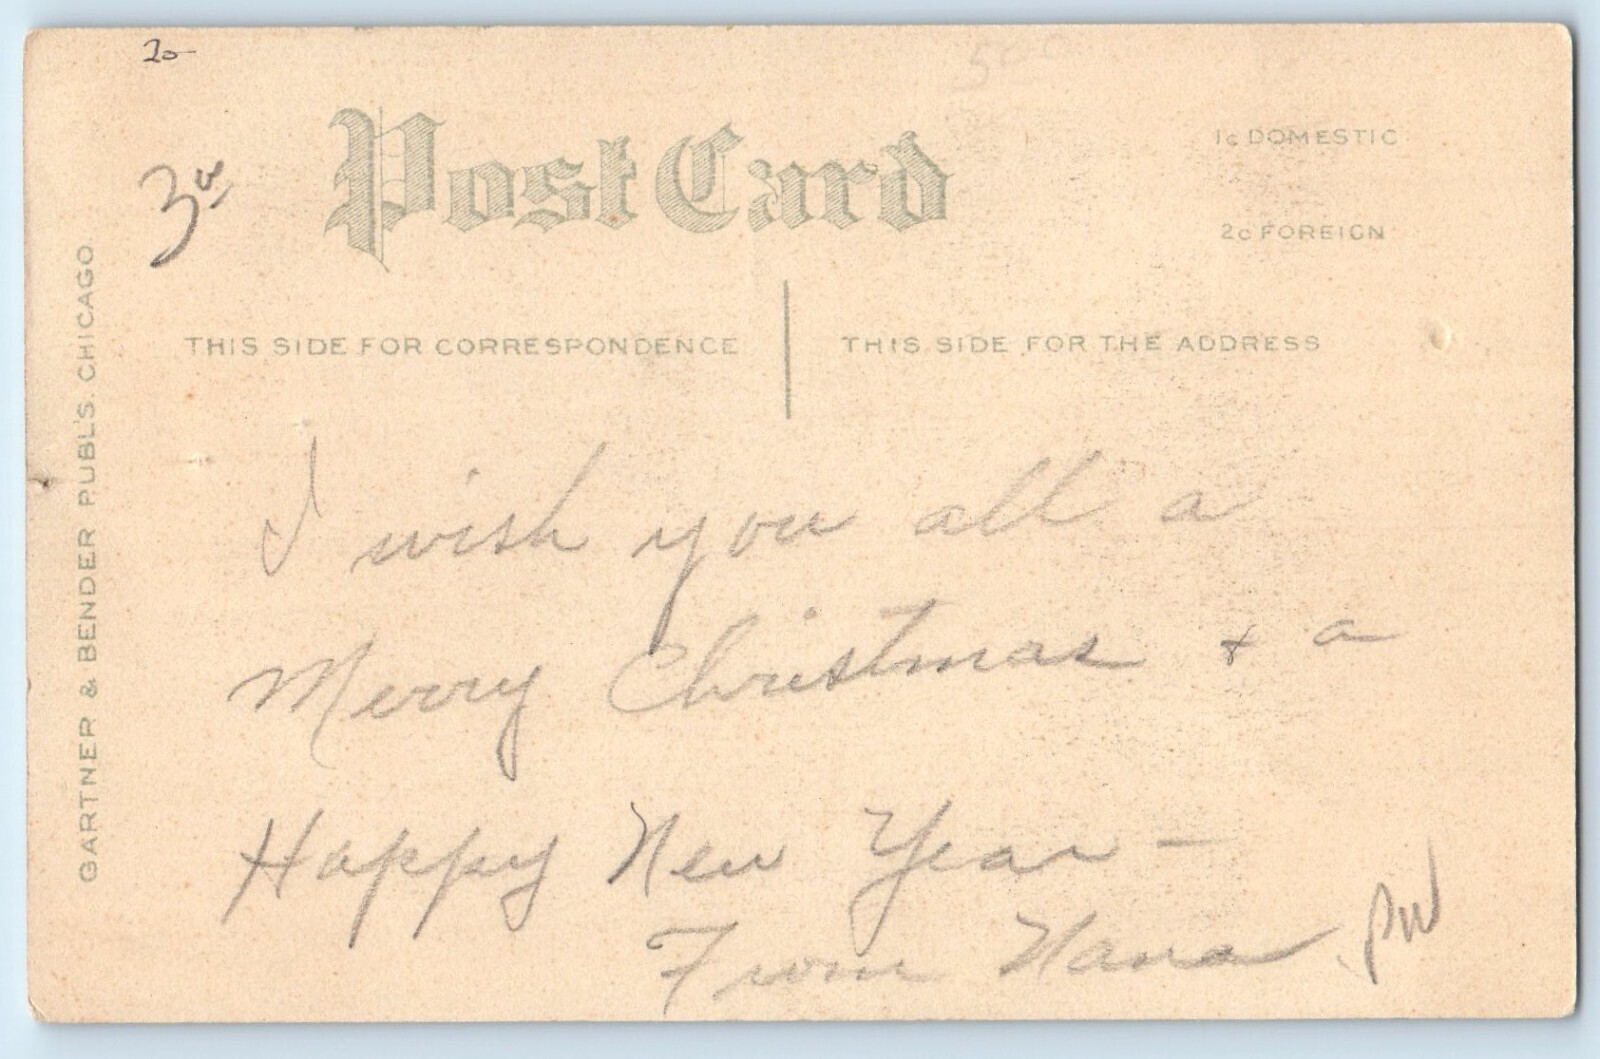 20-
300
Post Card
1c DOMESTIC
2c FOREIGN
THIS SIDE FOR CORRESPONDENCE
THIS SIDE FOR THE ADDRESS
GARTNER & BENDER PUBL'S. CHICAGO
I wish you all a
Merry Christmas + a
Happy New Year -
From Nana
PW